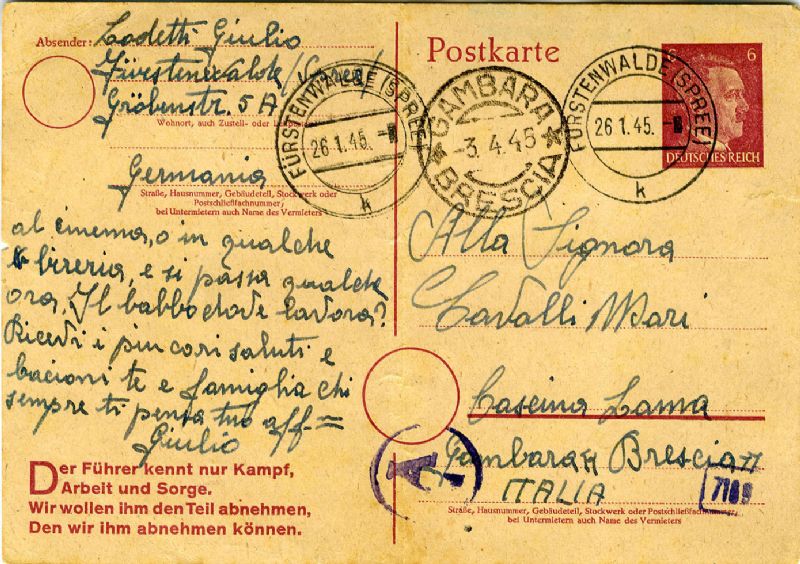 Absender: Codetti Giulio
Fürstenwalde/Spree/
Gröbenstr. 5A
Wohnort, auch Zustell- oder
Germania
Straße, Hausnummer, Gebäudeteil, Stockwerk oder
Postschließfachnummer;
bei Untermietern auch Name des Vermieters
al cinema, o in qualche
birreria, e si passa qualche
ora. Il babbo dove lavora?
Ricevi i più cari saluti e
bacioni te e famiglia chi
sempre ti pensa tuo aff=
Giulio
Der Führer kennt nur Kampf,
Arbeit und Sorge.
Wir wollen ihm den Teil abnehmen,
Den wir ihm abnehmen können.
Postkarte
FÜRSTENWALDE (SPREE)
26.1.45.-
k
GAMBARA
-3.4.45
BRESCIA
FÜRSTENWALDE (SPREE)
26.1.45.-
k
6 6
DEUTSCHES REICH
Alla Signora
Cavalli Mari
Cascina Lama
Gambara Brescia
ITALIA
A
7189
Straße, Hausnummer, Gebäudeteil, Stockwerk oder Postschließfachnummer;
bei Untermietern auch Name des Vermieters